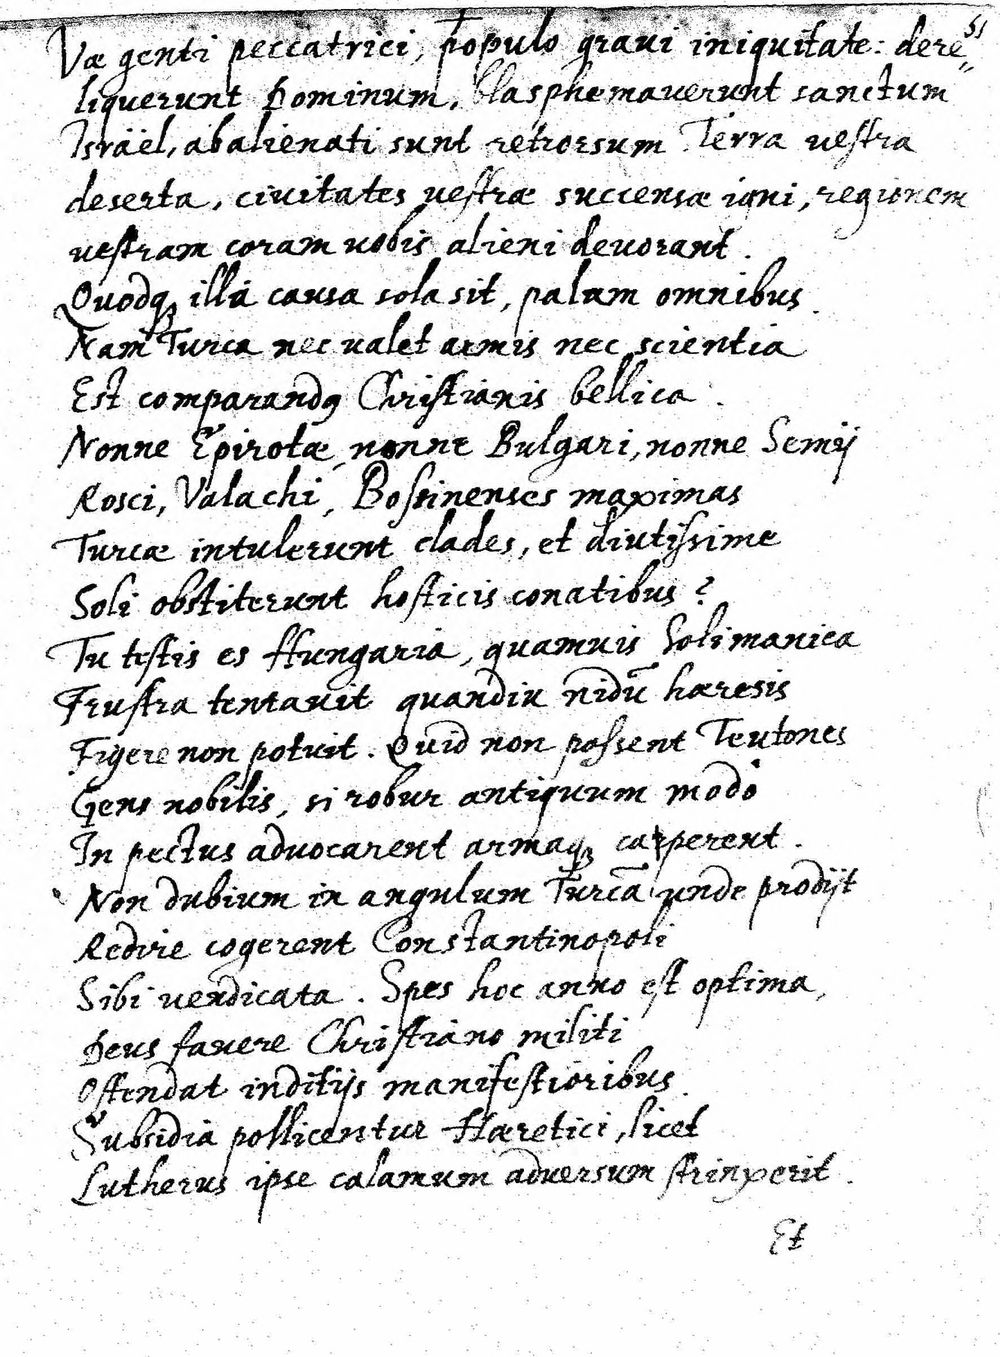 51
Væ genti peccatrici, populo graui iniquitate: dere„
liquerunt Dominum, blasphemauerunt sanctum
Israël, abalienati sunt retrorsum. Terra uestra
deserta, ciuitates uestræ succensæ igni, regionem
uestram coram uobis alieni deuorant.
Quodq; illa causa sola sit, palam omnibus.
Nam Turca nec ualet armis nec scientia
Est comparandq Christianis bellica.
Nonne Epirotæ, nonne Bulgari, nonne Semij
Rosci, Valachi, Bostinenses maximas
Turcæ intulerunt clades, et diutissime
Soli obstiterunt hosticis conatibus?
Tu testis es Hungaria, quamuis Solimanica
Frustra tentauit quandiu nidū hæresis
Figere non potuit. Quid non possent Teutones
Gens nobilis, si robur antiquum modo
In pectus aduocarent armaq; capperent.
Non dubium in angulum Turcā unde prodijt
Redire cogerent Constantinopoli
Sibi uendicata. Spes hoc anno est optima,
Deus fauere Christiano militi
Ostendat inditijs manifestioribus.
Subsidia pollicentur Hæretici, licet
Lutherus ipse calamum aduersum strinxerit.
Et